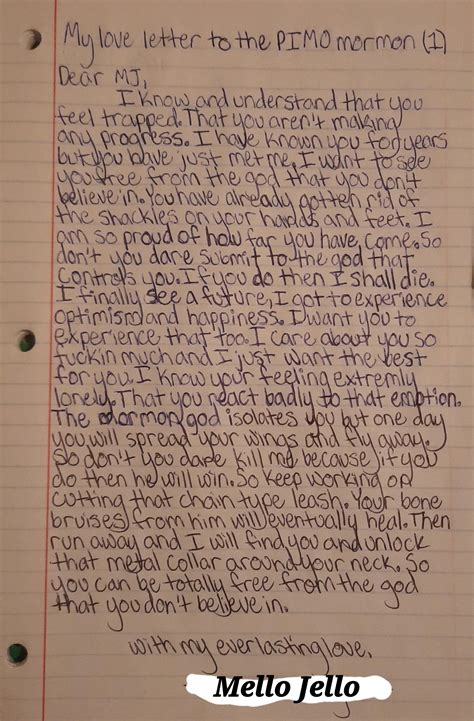 My love letter to the PIMO mormon (1)
Dear MJ,
I know and understand that you
feel trapped. That you aren't making
any progress. I have known you for years
but you have just met me. I want to see
you free from the god that you don't
believe in. You have already gotten rid of
the shackles on your hands and feet. I
am so proud of how far you have, come. So
don't you dare submit to the god that
controls you. If you do then I shall die.
I finally see a future, I got to experience
optimism and happiness. I want you to
experience that too. I care about you so
fuckin much and I just want the best
for you. I know your feeling extremly
lonely. That you react badly to that emotion.
The mormon god isolates you but one day
you will spread your wings and fly away.
So don't you dare kill me because if you
do then he will win. So keep working on
cutting that chain type leash. Your bone
bruises from him will eventually heal. Then
run away and I will find you and unlock
that metal collar around your neck. So
you can be totally free from the god
that you don't believe in.
with my everlasting love,
Mello Jello